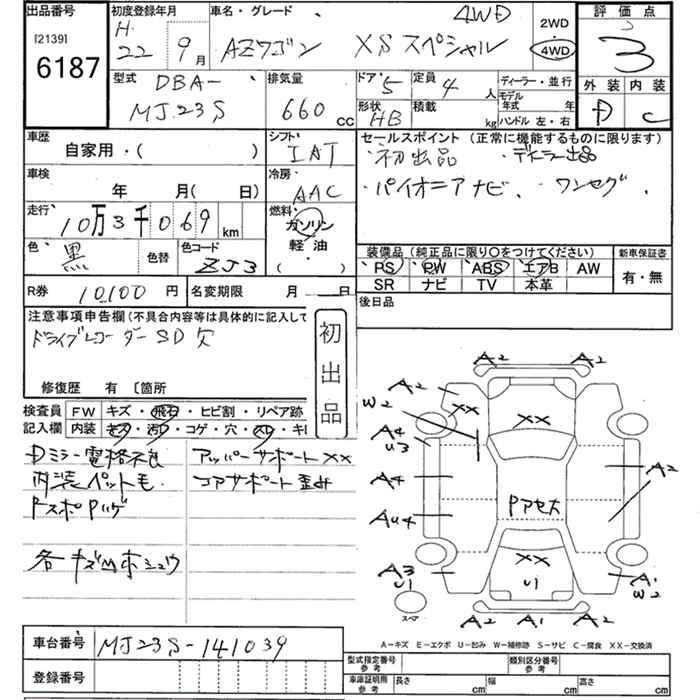 出品番号
[2139]
6187
初度登録年月
H.
22 9月
車名・グレード
4WD
AZワゴン XSスペシャル
2WD
4WD
評価点
3
外装 内装
D C
型式
DBA-
MJ23S
排気量
660 cc
ドア 5
形状 HB
定員 4 人
積載 kg
ディーラー・並行
モデル年式 年
ハンドル 左・右
車歴
自家用・( )
シフト
IAT
セールスポイント (正常に機能するものに限ります)
・初出品 ・ディーラー出品
・パイオニアナビ、・ワンセグ、
車検
年 月( 日)
冷房
AAC
走行
10万3千069 km
燃料
ガソリン
軽油
( ・ )
色
黒
色替
色コード
ZJ3
装備品 (純正品に限り〇をつけてください)
PS PW ABS エアB AW
SR ナビ TV 本革
新車保証書
有・無
R券 10,100 円
名変期限 月 日
後日品
注意事項申告欄 (不具合内容等は具体的に記入して
ドライブレコーダーSD欠
初出品
修復歴 有 〔箇所
検査員記入欄
FW キズ・飛石・ヒビ割・リペア跡
内装 キズ・汚れ・コゲ・穴・スレ・キレ
Dミラー電格不良
内装ペット毛
アッパーサポートXX
コアサポート歪み
各キズ凹ホシュウ
A2 A2
A2 XX XX
W2
A4
U3
A4
A2
AU4
Pアセ大
XX
U1
A3
U1
A1
W2
スペア
A2 A1 A2
A-キズ E-エクボ U-凹み W-補修跡 S-サビ C-腐食 XX-交換済
車台番号 MJ23S-141039
登録番号
型式指定番号 参考
類別区分番号 参考
車庫証明用 参考 長さ cm 幅 cm 高さ cm